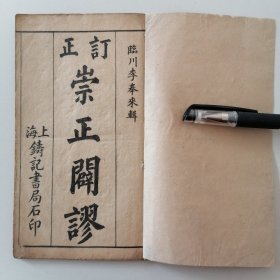 臨川李奉來輯
訂正
崇正闢謬
上海鑄記書局石印